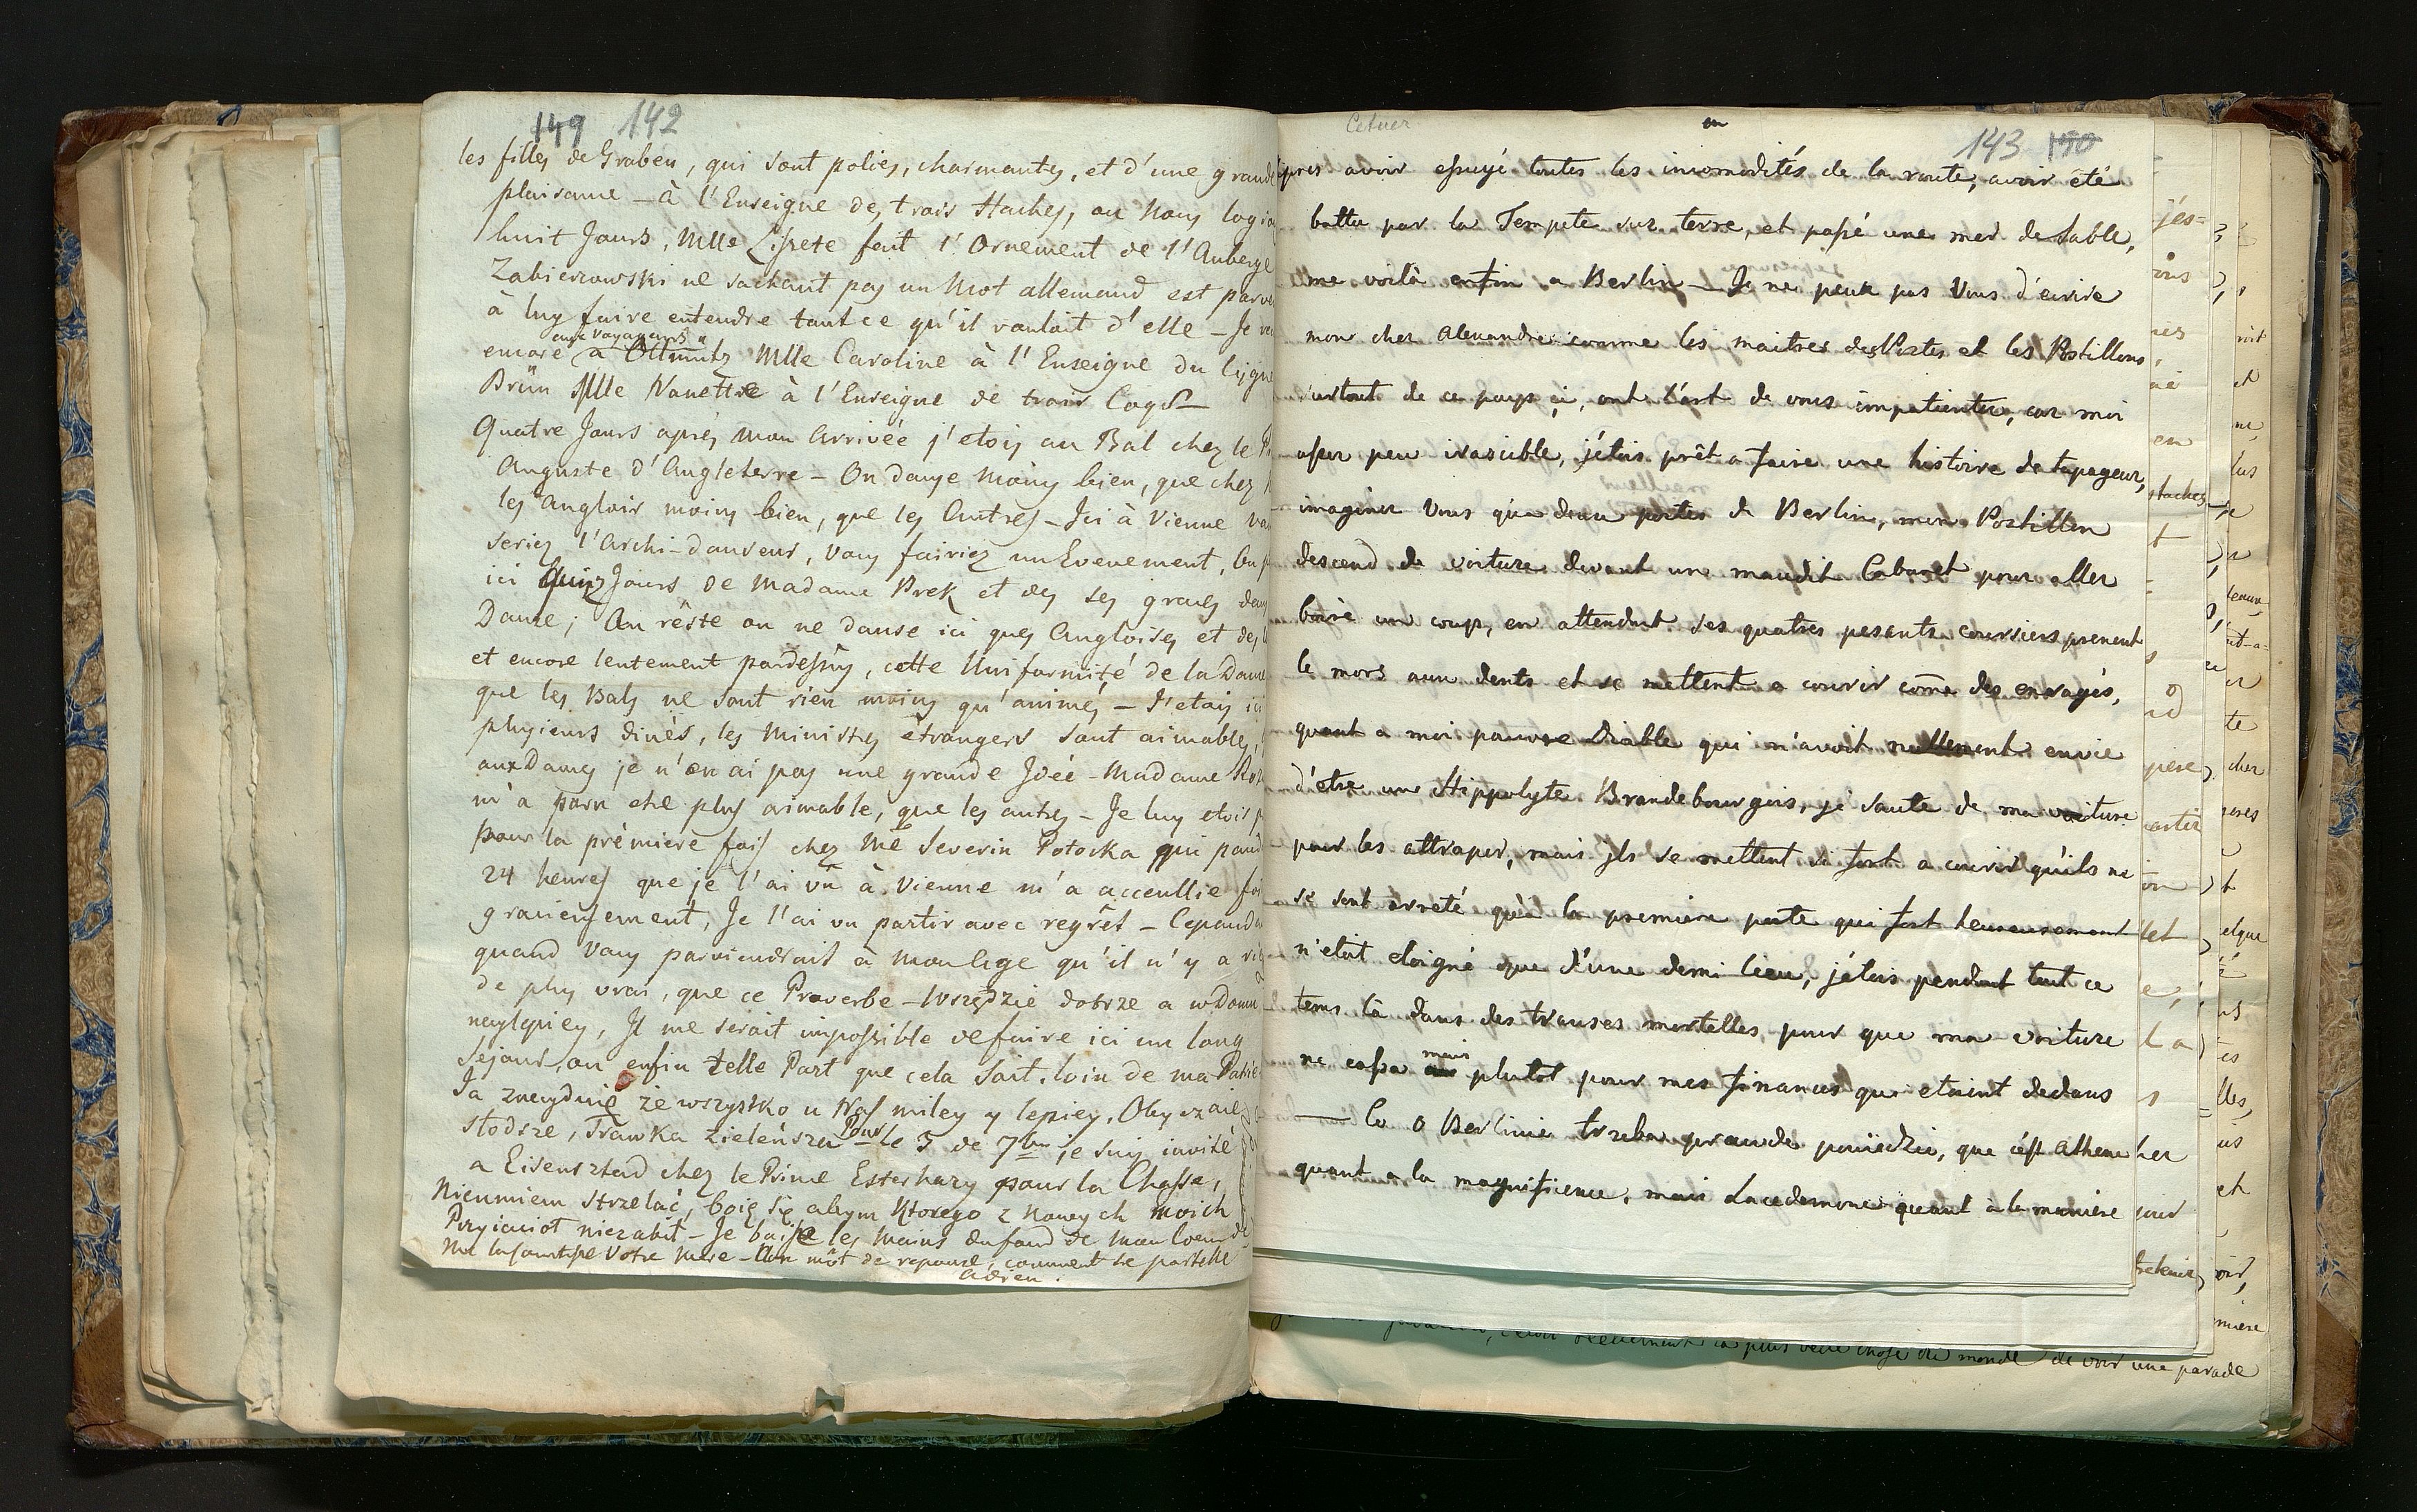 149 142
les filles de Graben, qui sont polies, charmantes, et d'une grande
plaisance - à l'Enseigne des trois Haches, ou nous logions
huit Jours, Mlle Lisete fait l'Ornement de l'Auberge
Zabierzowski ne sachant pas un Mot allemand est
à luy faire entendre tout ce qu'il voulait d'elle - Je
aux voyageurs
encore à Ollmutz Mlle Caroline à l'Enseigne du Cigne
Brün Mlle Nanettre à l'Enseigne de trois Coqs -
Quatre Jours aprés mon Arrivée j'etois au Bal chez le
Auguste d'Angleterre - On danse moins bien, que chez
les Anglois moins bien, que les Autres - Ici à Vienne
seriez l'Archi-danseur, vous fairiez un Evenement, On
ici Quinz Jours de Madame Prek et des ses graces
Danse; Au rêste on ne danse ici ques Angloises et des
et encore lentement pardessus, cette Uniformité de la Danse
que les Bals ne sont rien moins qu'animés - J'etois ici
plusieurs dinés, les Ministres étrangers sont aimables,
aux Dames je n'en ai pas une grande Idée - Madame
m'a paru etre plus aimable, que les autres - Je luy etois
pour la prémiere fois chez Me Severin Potocka qui
24 heures que je l'ai vû à Vienne m'a acceullie
gracieusement, Je l'ai vu partir avec regrêt -
quand vous parviendrait à mon Age qu'il n'y a
de plus vrai, que ce Proverbe - Wszędzie dobrze a w Domu
naylepiey, Il me serait impossible de faire ici un long
Sejour, ou enfin telle Part que cela soit. loin de ma Patrie
Ja znayduię że wszystko u Nas miley y lepiey.
słodsze, Trawka zieleńsza Pour le 3 de 7bre je suis invité
a Eisensztad chez le Prince Esterhazy pour la Chasse,
Nieumiem strzelać, boię się abym Ktorego z Nowych moich
Przyiaciół niezabił - Je baise les Mains du fond de Mon Coeur de
Me Votre Mere - Un môt de reponse, comment se porte elle
Adieu.
Cetner
143 150
Apres avoir essuyé toutes les incomodités de la route, avoir été
battu par la Tempete sur terre, et passé une mer de sable,
me voilà enfin a Berlin - Je ne peux pas vous d'ecrire
mon cher Alexandre comme les maitres des Postes et les Postillons
surtout de ce pays ci, ont l'art de vous impatienter, car moi
assez peu irascible, j'étois prêt a faire une histoire de tapageur,
imaginez vous qu'a deux postes de Berlin, mon Postillon
descend de voiture devant un maudit Cabaret pour aller
boire un coup, en attendant ses quatres pesants coursiers prenent
le mors aux dents et se mettent a courir come des enragés,
quant a moi pauvre Diable qui n'avoit nullement envie
d'etre un Hippolyte Brandebourgois, je saute de ma voiture
pour les attraper, mais ils se mettent si fort a courir qu'ils ne
se sont arreté qu'a la premiere poste qui fort heureusement
n'etoit eloigné que d'une demi lieu, j'étois pendant tout ce
tems là dans des transes mortelles pour que ma voiture
mais
ne cassa plutot pour mes finances qui etoient dedans
— Co o Berlinie trzeba prawde powiedziec, que c'est Athene
quant a la magnificence, mais Lacedemone quant à la maniere
la plus belle chose du monde de voir une parade